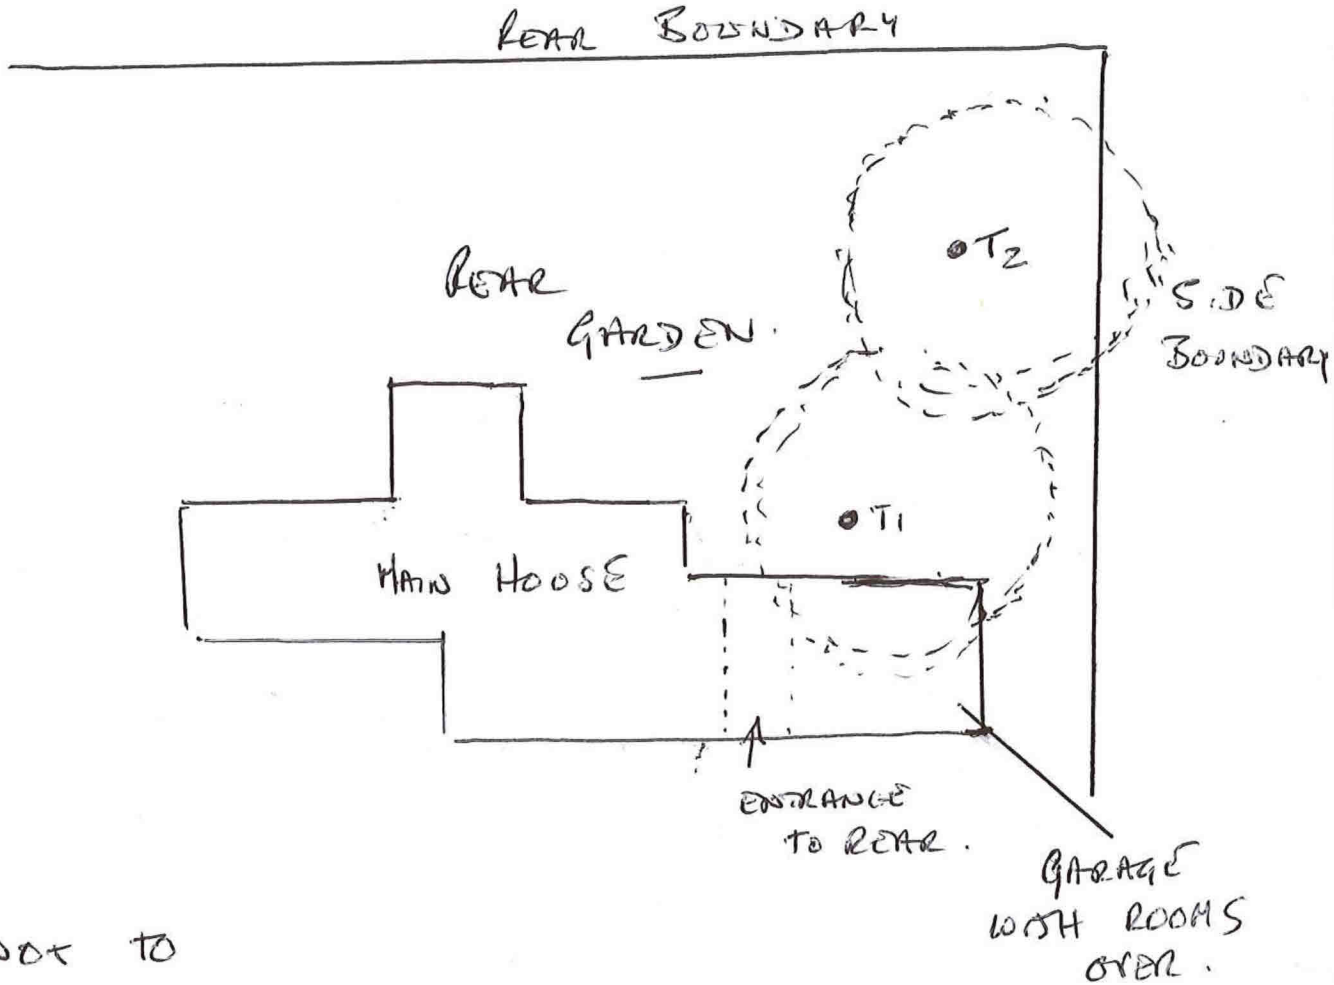 REAR BOUNDARY
T2
REAR
GARDEN.
SIDE
BOUNDARY
T1
MAIN HOUSE
ENTRANCE
TO REAR.
GARAGE
WITH ROOMS
OVER.
NOT TO